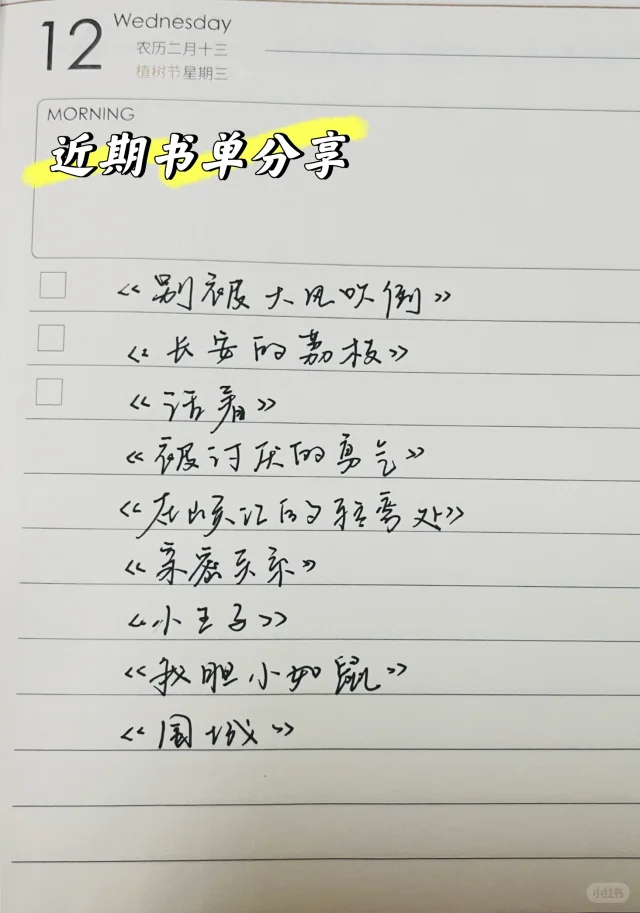 12
Wednesday
农历二月十三
植树节星期三
MORNING
近期书单分享
《别被大风吹倒》
《长安的荔枝》
《活着》
《被讨厌的勇气》
《在峡江的转弯处》
《亲密关系》
《小王子》
《我胆小如鼠》
《围城》
小红书